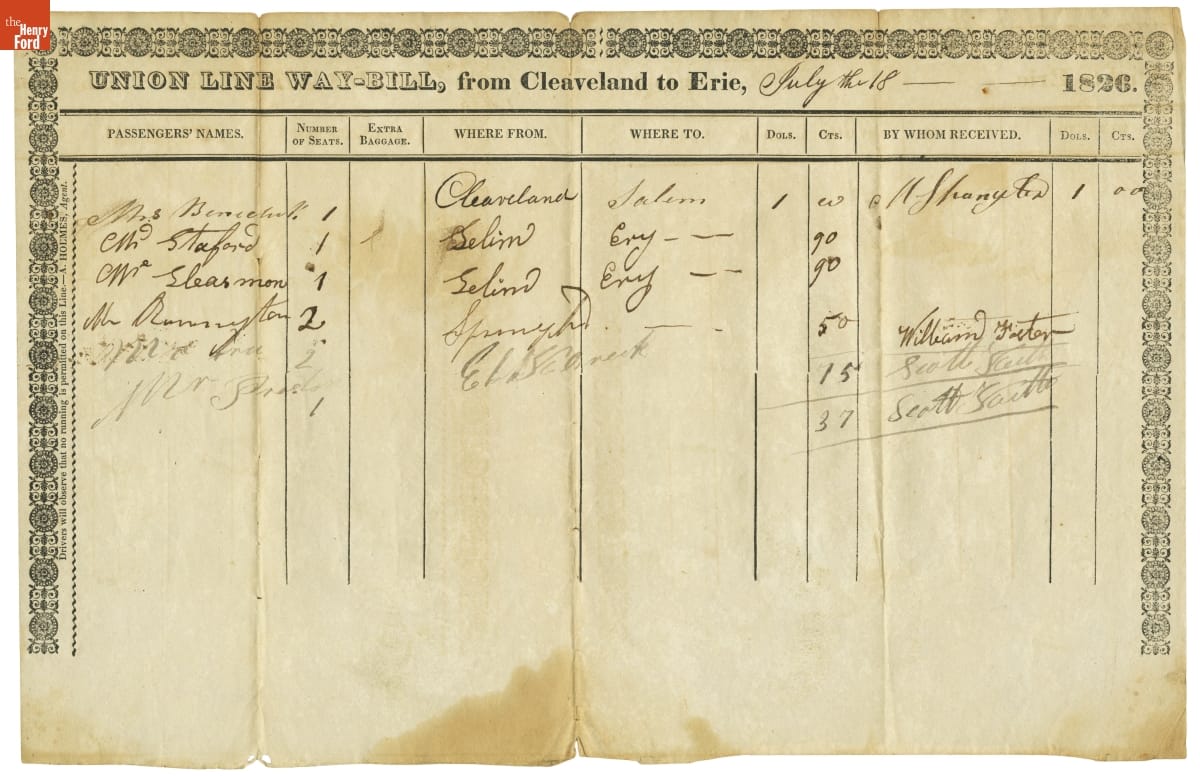 the Henry Ford
UNION LINE WAY-BILL, from Cleaveland to Erie, July the 18 1826.
PASSENGERS' NAMES. NUMBER OF SEATS. EXTRA BAGGAGE. WHERE FROM. WHERE TO. DOLS. CTS. BY WHOM RECEIVED. DOLS. CTS.
Mrs Benedict 1 Cleaveland Salem 1 00 1 00
Mr Staford 1 Selim Ery 90
Mr Gleasmon 1 Selind Ery 90
Mr 2 50 William Foster
2 15 Scott
Mr 1 37 Scott
Drivers will observe that no running is permitted on this Line.—A. HOLMES, Agent.